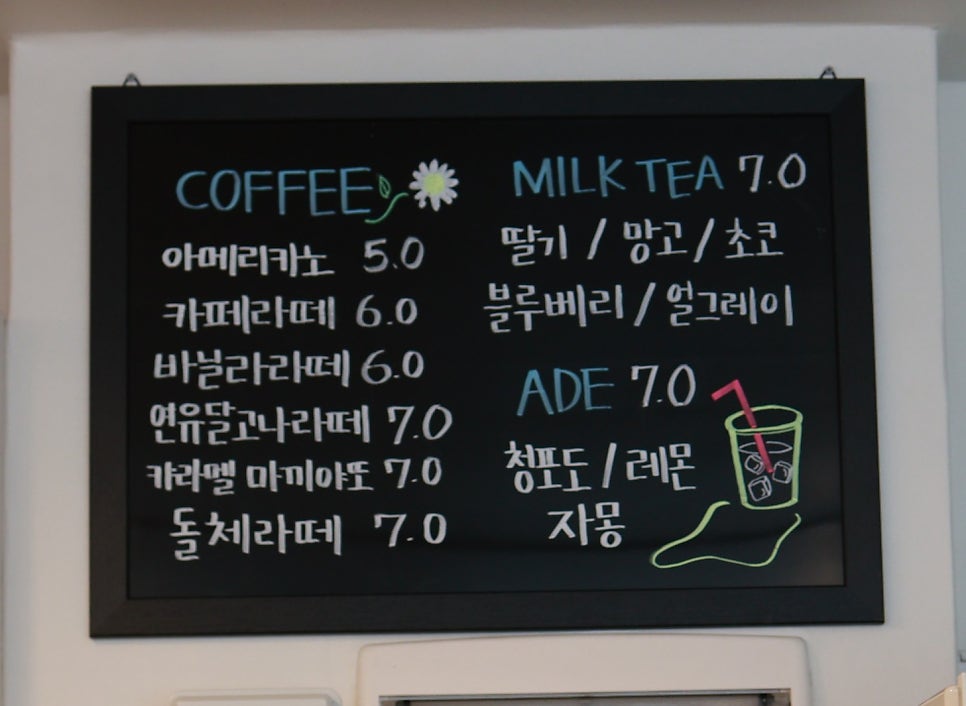 COFFEE
아메리카노 5.0
카페라떼 6.0
바닐라라떼 6.0
연유달고나라떼 7.0
캬라멜 마끼야또 7.0
돌체라떼 7.0
MILK TEA 7.0
딸기 / 망고 / 초코
블루베리 / 얼그레이
ADE 7.0
청포도 / 레몬
자몽